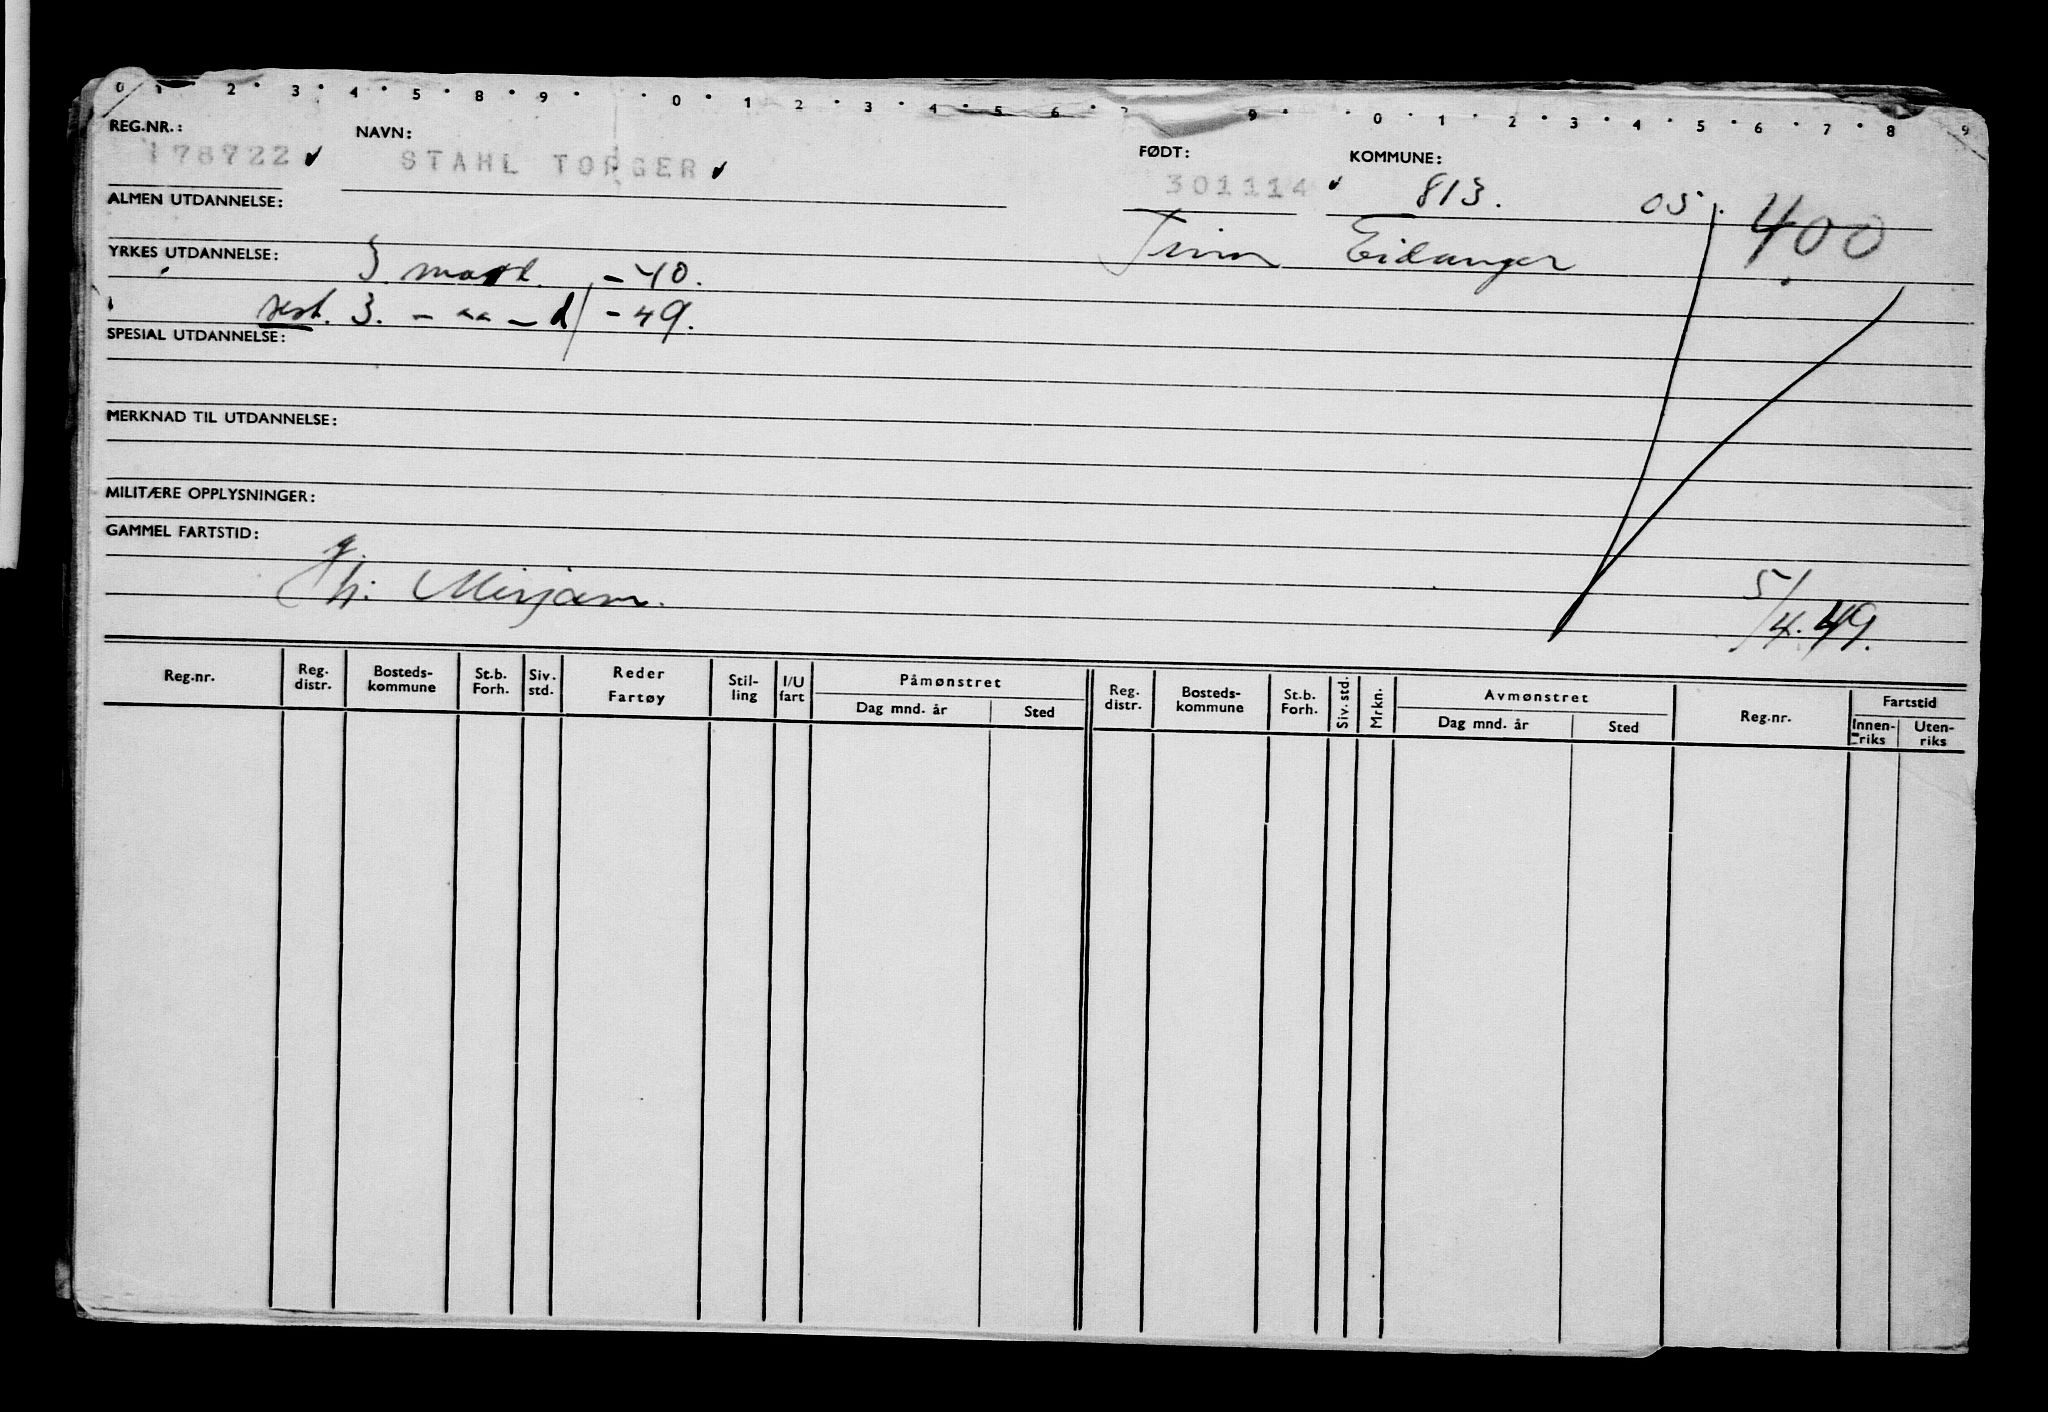 0 1 2 3 4 5 8 9 0 1 2 3 4 5 6 7 9 0 1 2 3 4 5 6 7 8 9
REG.NR.: NAVN: FØDT: KOMMUNE:
178722 ✓ STAHL TORGER ✓ 301114 ✓ 813. 05. 400
ALMEN UTDANNELSE:
Eidanger
YRKES UTDANNELSE: 3. mask. - 40.
3. - " - d/ - 49.
SPESIAL UTDANNELSE:
MERKNAD TIL UTDANNELSE:
MILITÆRE OPPLYSNINGER:
GAMMEL FARTSTID:
g.
h: Mirjam. 5/4.49.
Reg.nr. Reg. distr. Bosteds-kommune St.b. Forh. Siv. std. Reder Fartøy Stil-ling I/U fart Påmønstret Dag mnd. år Sted Reg. distr. Bosteds-kommune St.b. Forh. Siv. std. Mrkn. Avmønstret Dag mnd. år Sted Reg.nr. Fartstid Innen-riks Uten-riks